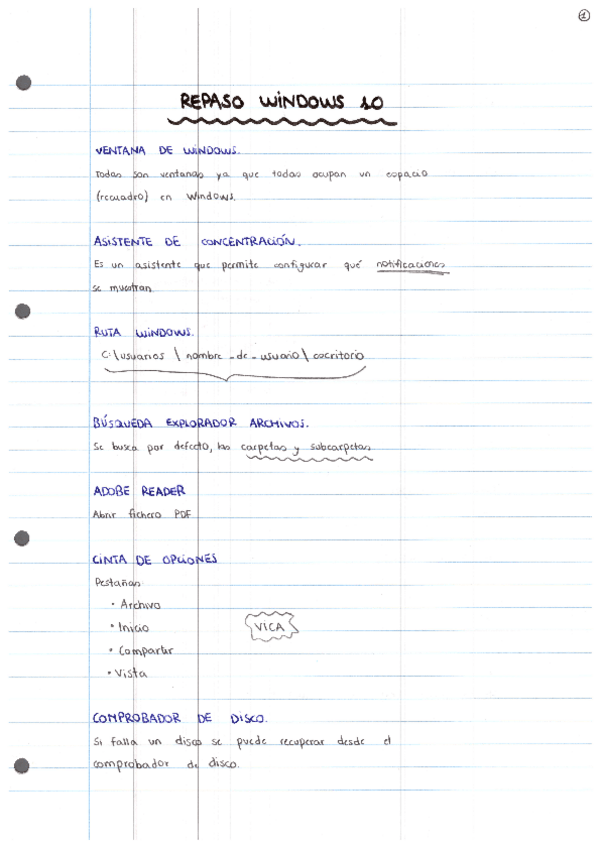 1
REPASO WINDOWS 10
VENTANA DE WINDOWS.
Todas son ventanas ya que todas ocupan un espacio
(recuadro) en Windows.
ASISTENTE DE CONCENTRACIÓN.
Es un asistente que permite configurar qué notificaciones
se muestran
RUTA WINDOWS.
C:\usuarios\nombre_de_usuario\escritorio
BÚSQUEDA EXPLORADOR ARCHIVOS.
Se busca por defecto, las carpetas y subcarpetas
ADOBE READER
Abrir fichero PDF
CINTA DE OPCIONES
Pestañas
• Archivo
• Inicio
VICA
• Compartir
• Vista
COMPROBADOR DE DISCO.
Si falla un disco se puede recuperar desde el
comprobador de disco.